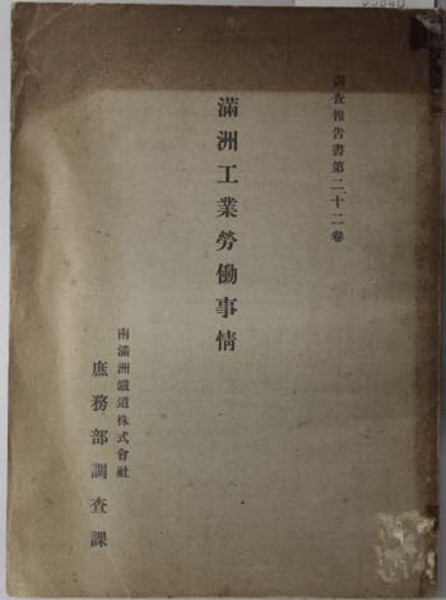 調査報告書第二十二卷
滿洲工業勞働事情
南滿洲鐵道株式會社
庶務部調査課